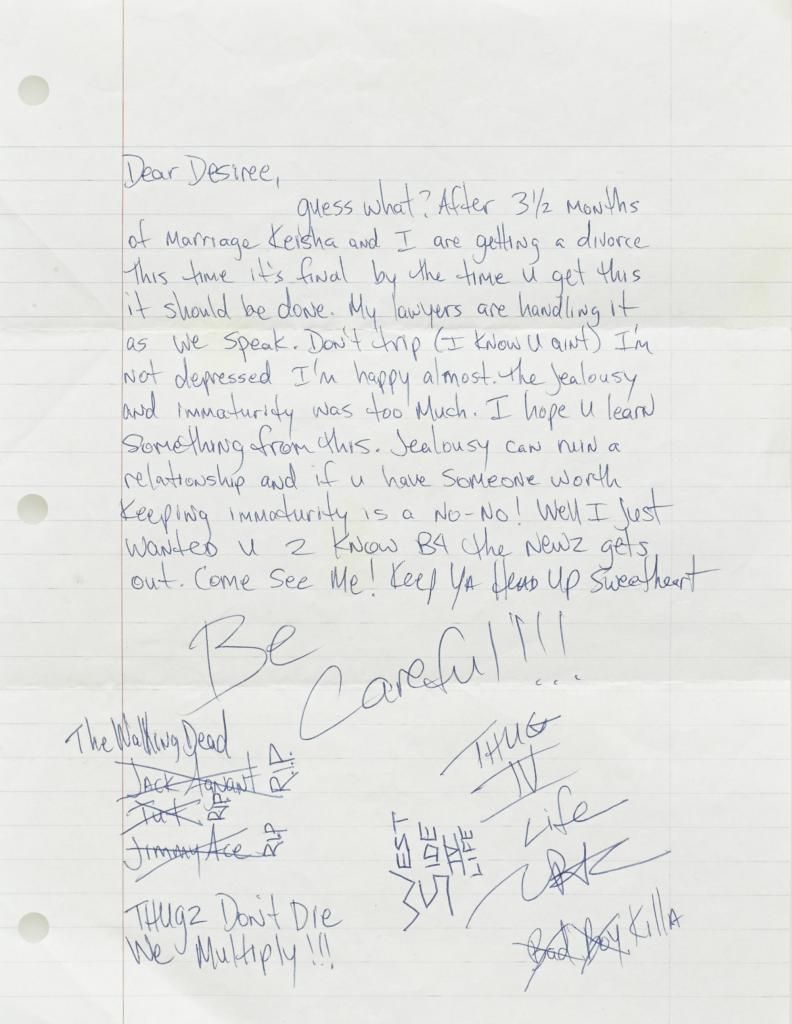 Dear Desiree,
guess what? After 3 1/2 months
of Marriage Keisha and I are getting a divorce
this time it's final by the time u get this
it should be done. My lawyers are handling it
as we speak. Don't trip (I know U aint) I'm
not depressed I'm happy almost. the jealousy
and immaturity was too much. I hope u learn
something from this. Jealousy can ruin a
relationship and if u have someone worth
keeping immaturity is a No-No! Well I just
wanted u 2 know B4 the newz gets
out. Come See Me! Keep YA HEAD UP Sweetheart
Be
Careful!!!
The Walking Dead
Jack Agnant R.I.P.
Tut RIP
Jimmy Ace R.I.P
THUGZ Don't Die
We Multiply!!!
WEST
SIDE
IV
LIFE
THUG
IV
Life
Bad Boy Killa